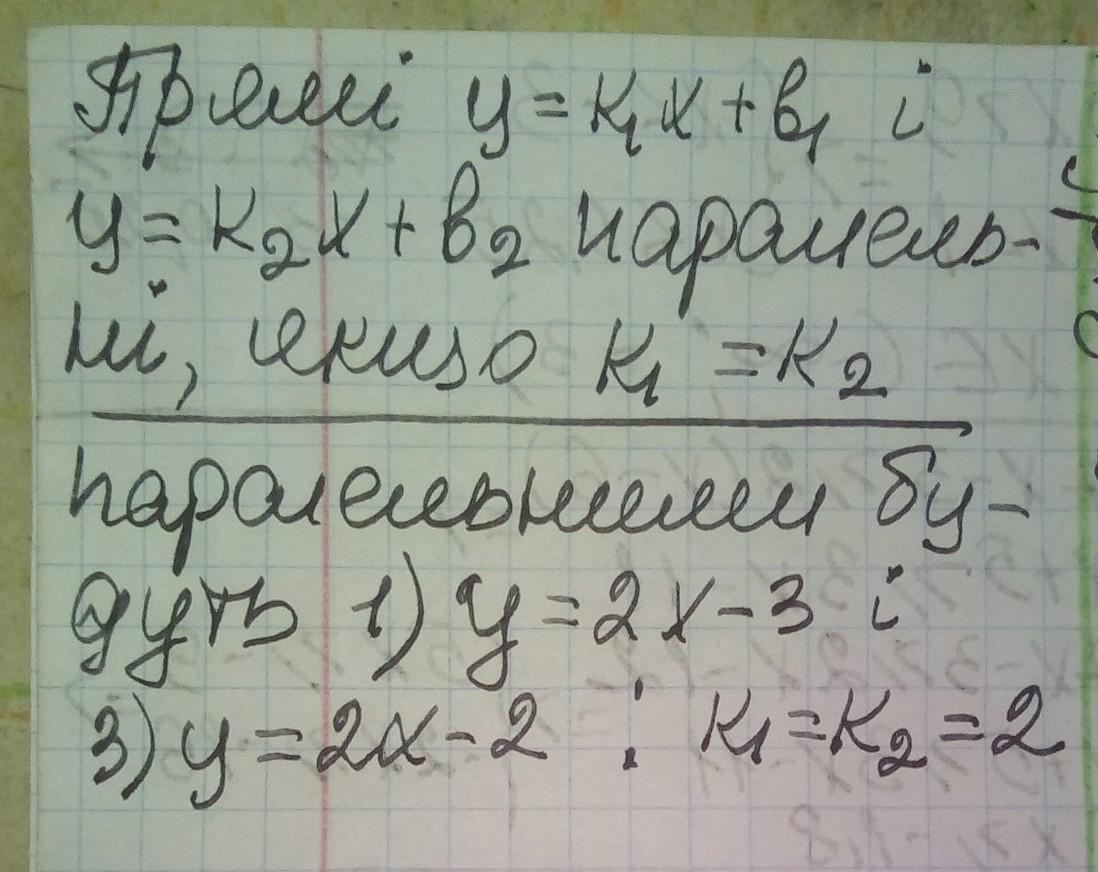 Прямі y = k₁x + b₁ і
y = k₂x + b₂ паралель-
ні, якщо k₁ = k₂
паралельними бу-
дуть 1) y = 2x - 3 і
3) y = 2x - 2 ; k₁ = k₂ = 2